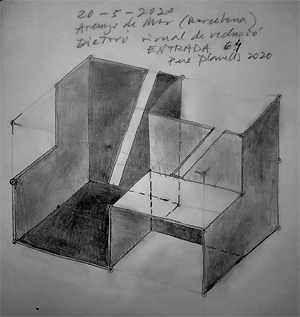 20 - 5 - 2020
Arenys de Mar (Barcelona)
Dietari visual de reclusió
ENTRADA 64
Pere Planells 2020